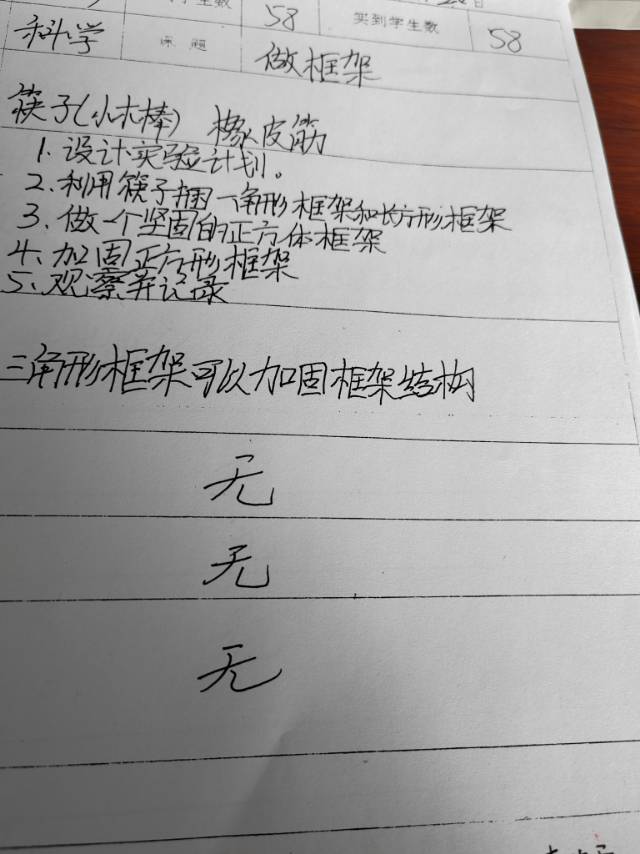 学生数 58 实到学生数 58
科学 课题 做框架
筷子(小木棒) 橡皮筋
1. 设计实验计划。
2. 利用筷子捆一角形框架和长方形框架
3. 做一个坚固的正方体框架
4. 加固正方形框架
5. 观察并记录
三角形框架可以加固框架结构
无
无
无